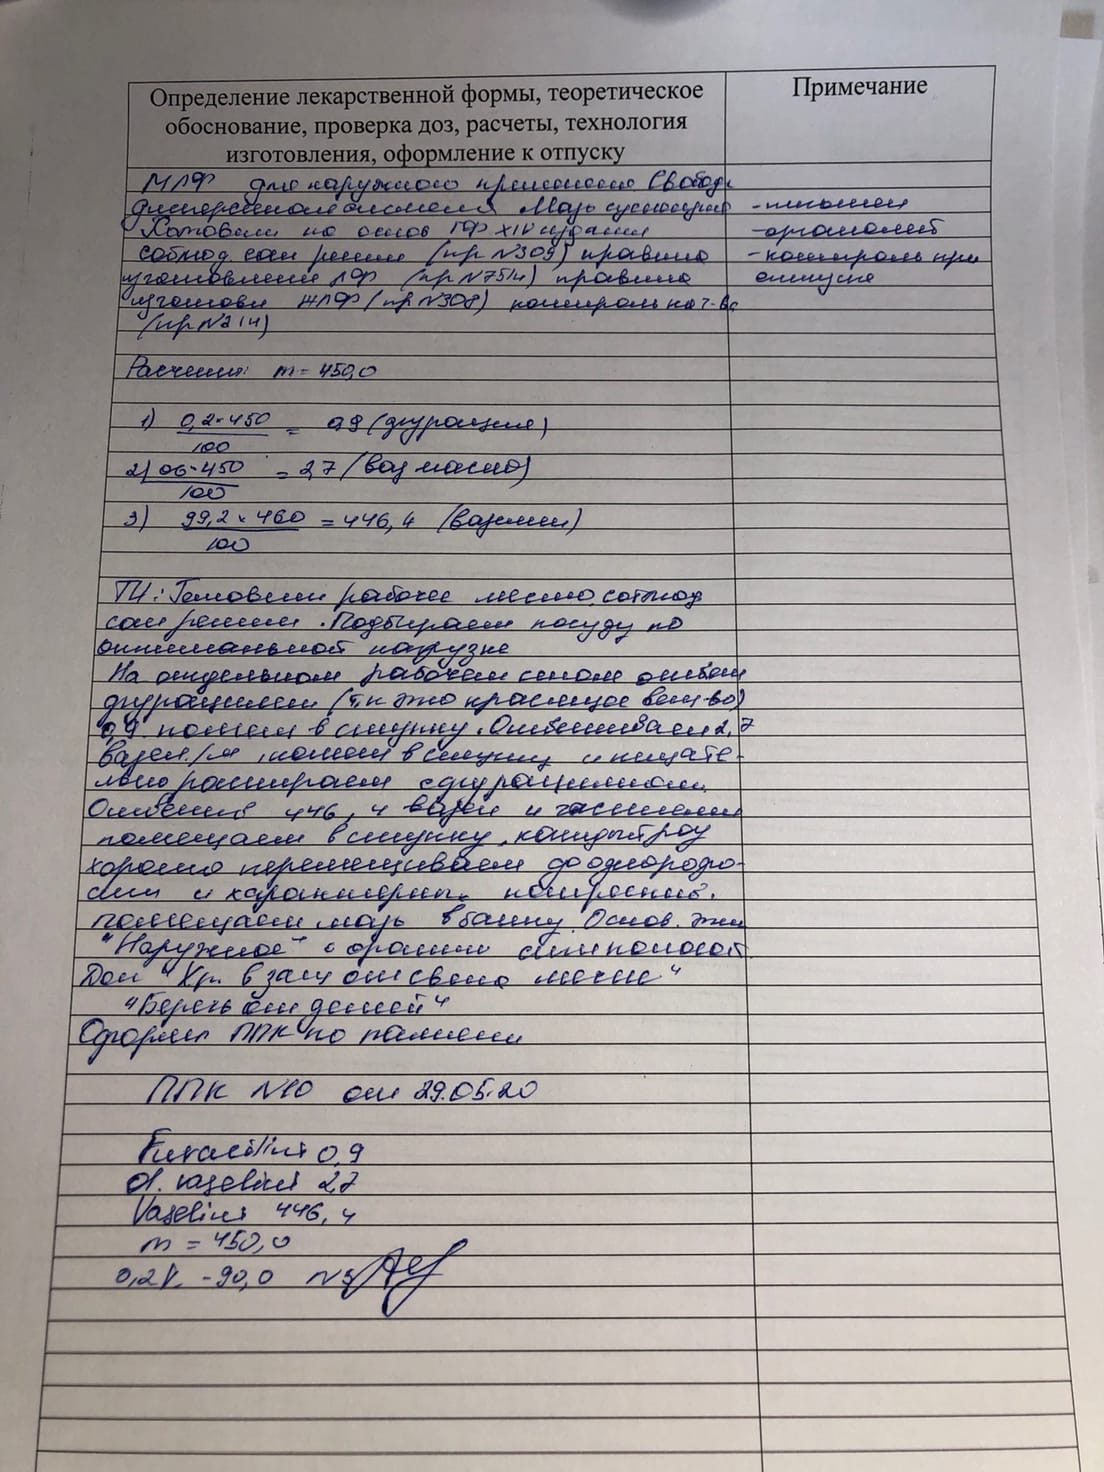 Определение лекарственной формы, теоретическое
обоснование, проверка доз, расчеты, технология
изготовления, оформление к отпуску
Примечание
МЛФ для наружного применения Свобод.
дисперсионная система Мазь суспензия - письмен
Готовим на основ ГФ XIV издания - органолеп
соблюд. сан режим (пр N309) правила - контроль при
изготовления ЛФ (пр N751н) правила отпуске
изготовл ЖЛФ (пр N308) контроль кач-ва
(пр N214)
Расчеты: m = 450,0
1) 0,2 × 450 / 100 = 0,9 (фурацилин)
2) 06 · 450 / 100 = 2,7 (ваз масло)
3) 99,2 × 450 / 100 = 446,4 (вазелин)
ТИ: Готовим рабочее место, соблюд
сан режим. Подбираем посуду по
оптимальной нагрузке
На отдельном рабочем столе отвеш
фурацилин (т.к это красящее вещ-во)
0,9 помещ в ступку. Отвешиваем 2,7
вазел. /м , помещ в ступку и тщате-
льно растираем с фурацилином.
Отвешив 446,4 вазел и частями
помещаем в ступку, каждый раз
хорошо перемешиваем до однородно-
сти и характерн. потрескив.
помещаем мазь в банку. Основ. эти
"Наружное" с оранж сигн полосой
Доп "Хр. в защ от света месте"
"Беречь от детей"
Оформл ППК по памяти
ППК N10 от 29.05.20
Furacilini 0,9
Ol. vaselini 2,7
Vaselini 446,4
m = 450,0
0,2% - 90,0 N5